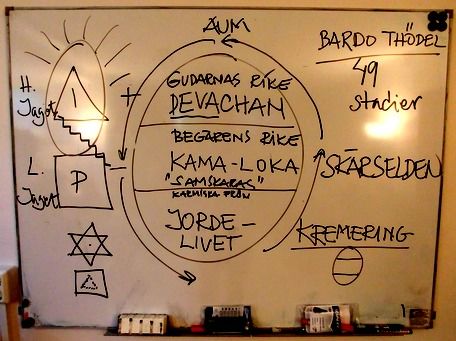 AUM
BARDO THÖDEL
49
stadier
H.
Jaget
I
+
GUDARNAS RIKE
DEVACHAN
BEGÄRENS RIKE
KAMA-LOKA
"SAMSKARAS"
KARMISKA FRÖN
SKÄRSELDEN
L.
Jaget
P
-
JORDE-
LIVET
KREMERING